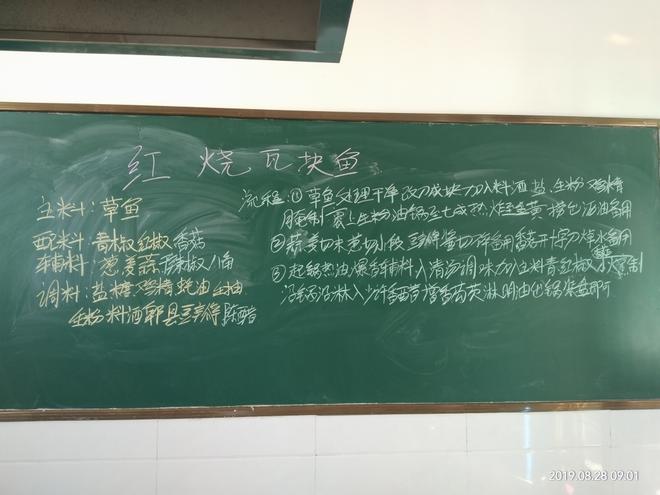 红烧瓦块鱼
主料：草鱼
配料：青椒 红椒 香菇
辅料：葱 姜 蒜 干辣椒 八角
调料：盐 糖 鸡精 蚝油
生粉 料酒 郫县豆瓣 陈醋
流程：① 草鱼处理干净 改刀成块 加入料酒 盐 生粉 鸡精
腌制 裹上生粉油锅至七成热 炸至金黄 捞出沥油备用
② 蒜 姜切末 葱切小段 豆瓣酱切碎备用 香菇开十字刀焯水备用
③ 起锅热油 爆香辅料 入清汤调味 加主料 青红椒 香菇 小火
入少许香醋 淋明油出锅 装盘即可
2019.08.28 09:01